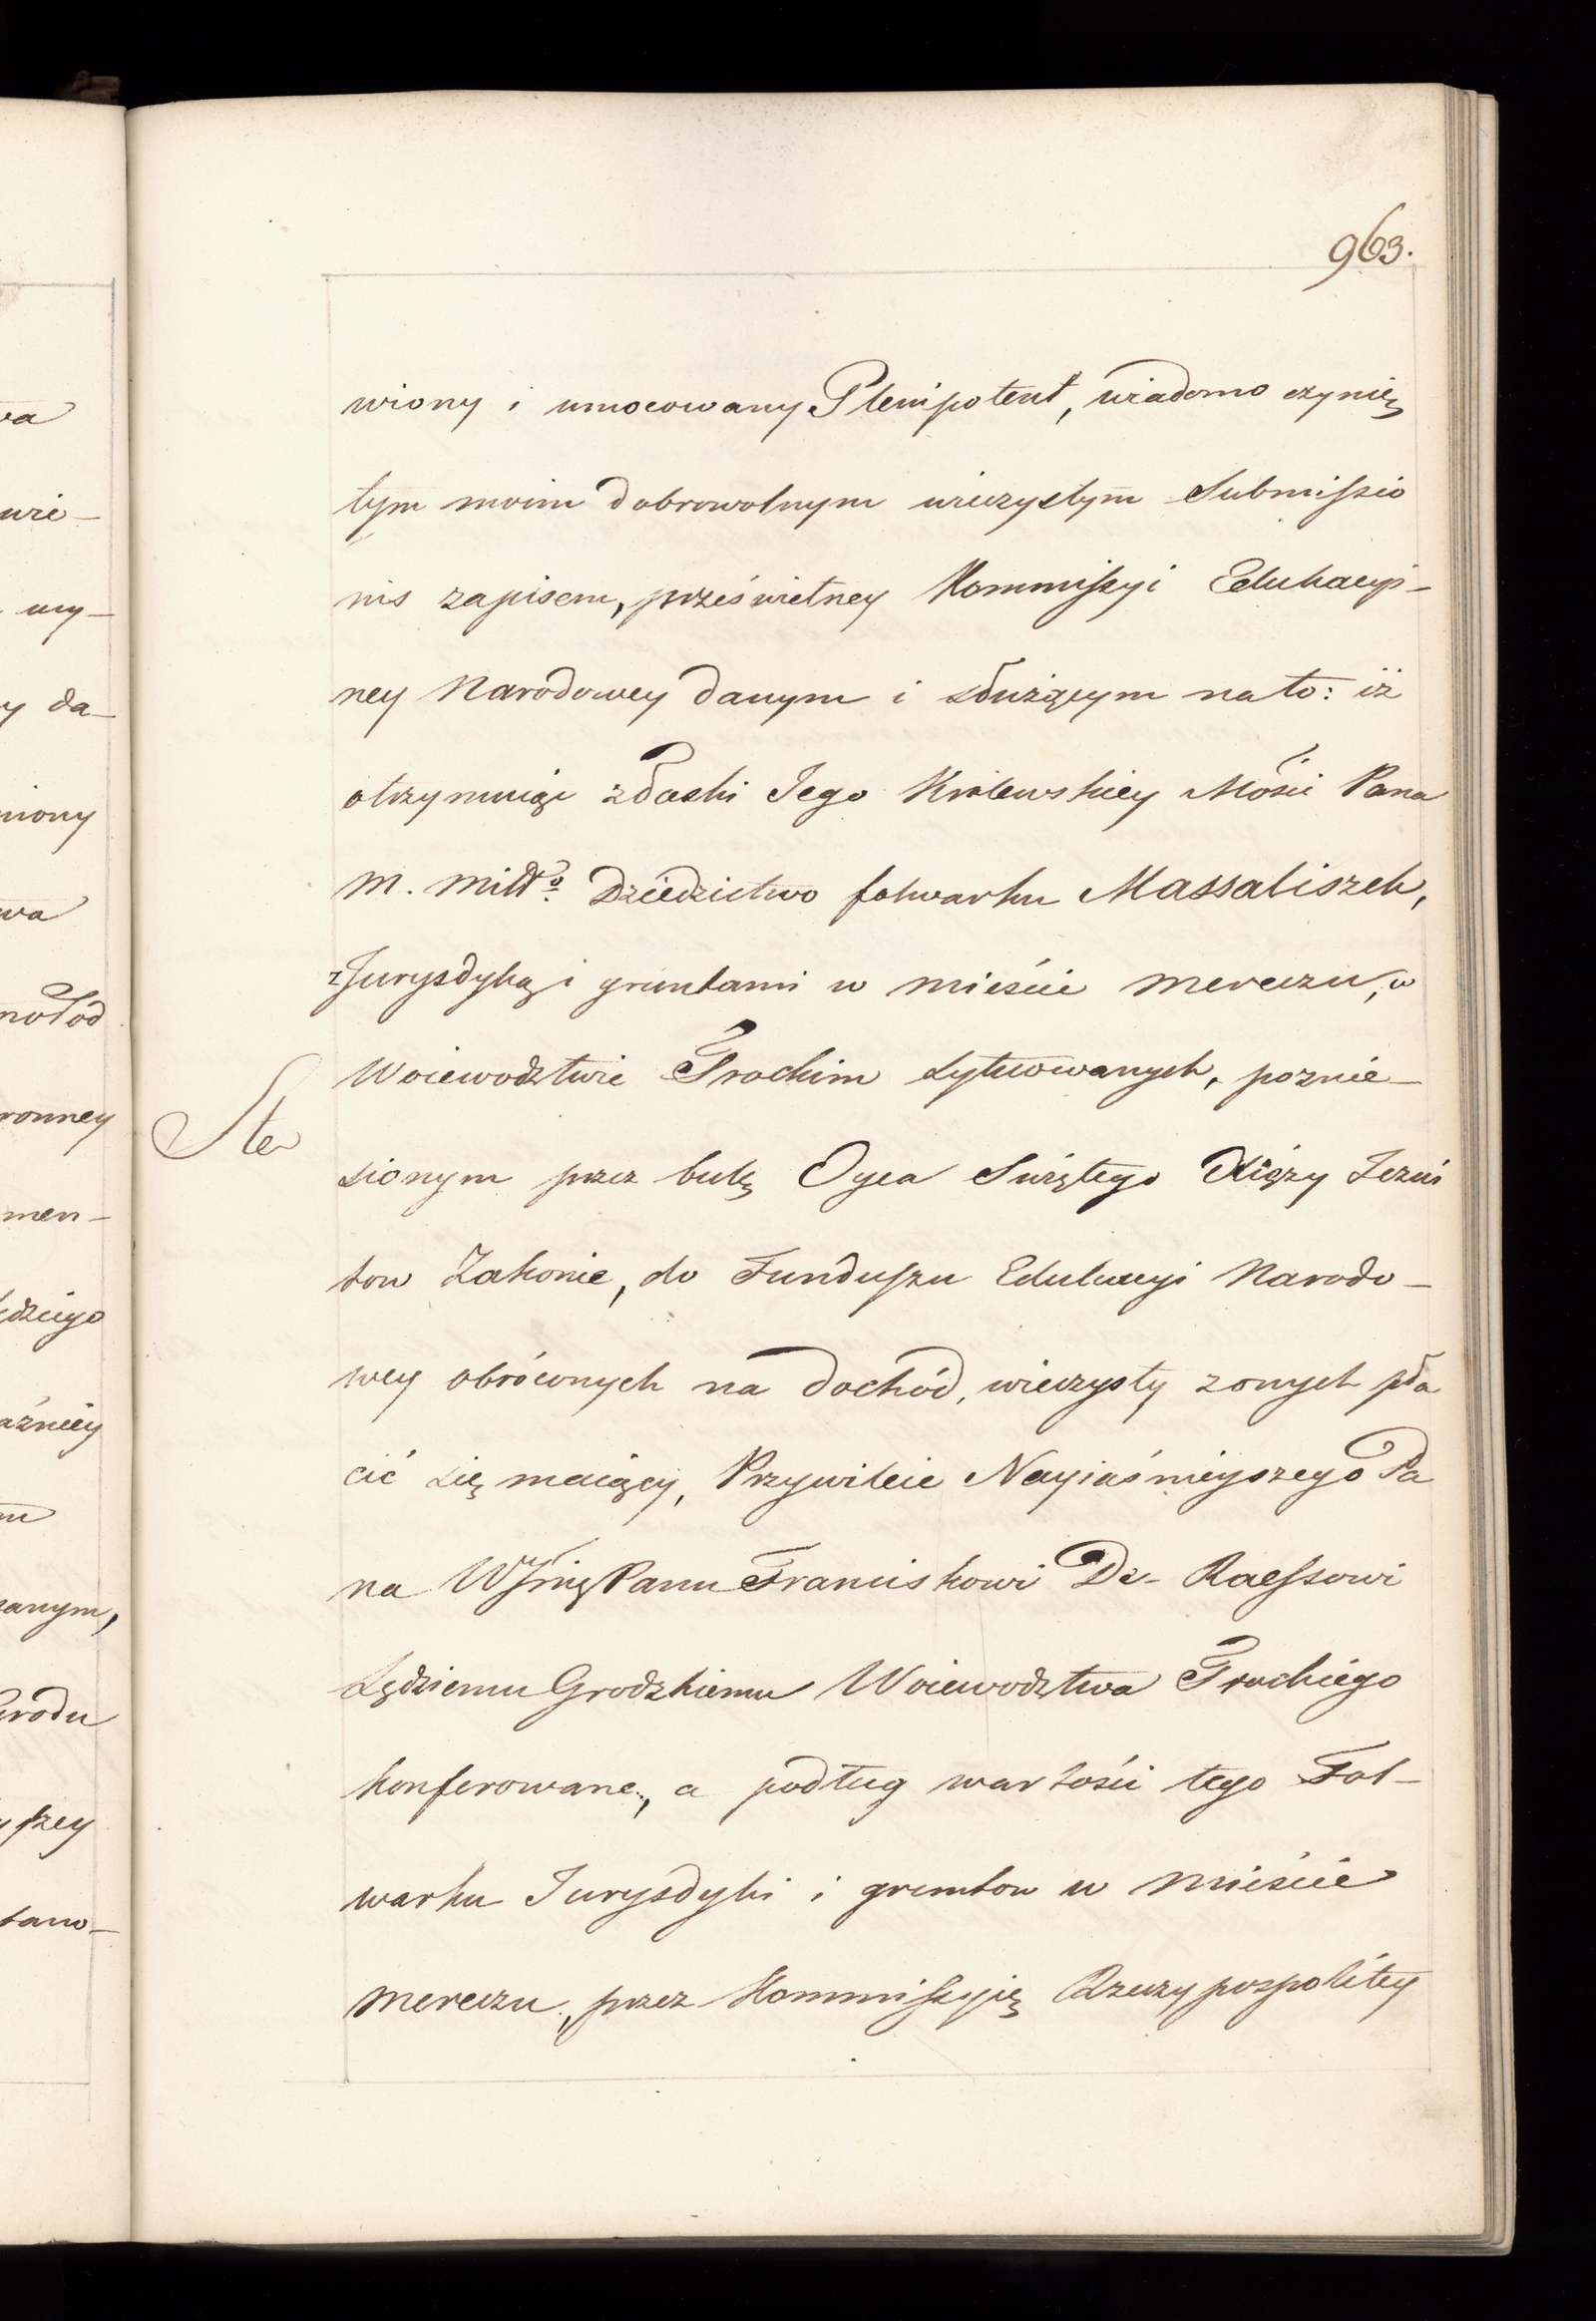 963.
wiony i umocowany Plenipotent, wiadomo czynię
tym moim dobrowolnym wieczystym Submissio
nis zapisem, prześwietney Kommissyi Edukacyi-
ney Narodowey danym i służącym na to: iż
otrzymuiąc z łaski Jego Królewskiey Mości Pana
M. Miłł⁰ Dziedzictwo folwarku Massaliszek,
z Jurysdyką i gruntami w mieście Mereczu, w
Woiewodztwie Trockim sytuowanych, po znie-
sionym przez bullę Oyca Świętego Xięży Jezui
tow Zakonie, do Funduszu Edukacyi Narodo-
wey obróconych na dochód, wieczysty z onych pła
cić się maiący, Przywileie Nayiaśnieyszego Pa
na WJmć Panu Franciszkowi De- Raessowi
Sędziemu Grodzkiemu Woiewodztwa Trockiego
konferowane, a podług wartości tego Fol-
warku Jurysdyki i gruntow w Mieście
Mereczu, przez Kommissyię Rzeczypospolitey
Ste
wie-
wy-
y da-
niony
ronney
men-
dziego
aźniey
zanym,
Grodu
tano-